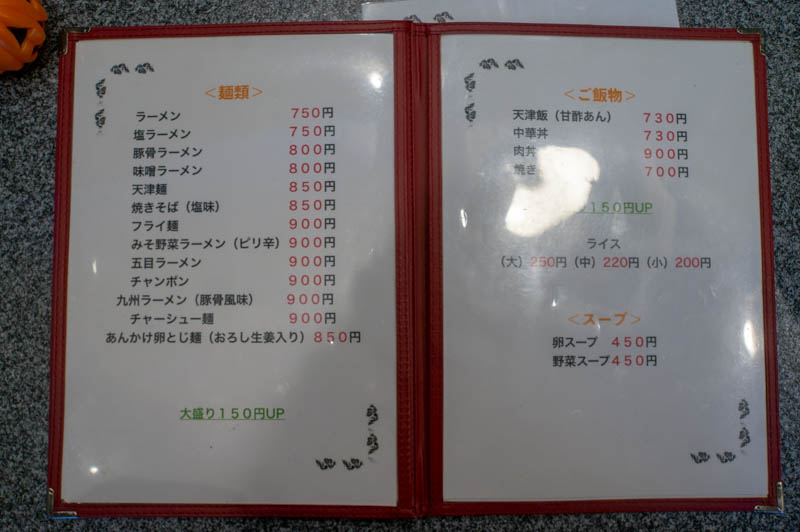 ＜麺類＞
ラーメン 750円
塩ラーメン 750円
豚骨ラーメン 800円
味噌ラーメン 800円
天津麺 850円
焼きそば（塩味） 850円
フライ麺 900円
みそ野菜ラーメン（ピリ辛） 900円
五目ラーメン 900円
チャンポン 900円
九州ラーメン（豚骨風味） 900円
チャーシュー麺 900円
あんかけ卵とじ麺（おろし生姜入り） 850円
大盛り150円UP
＜ご飯物＞
天津飯（甘酢あん） 730円
中華丼 730円
肉丼 900円
焼き 700円
150円UP
ライス
（大）250円（中）220円（小）200円
＜スープ＞
卵スープ 450円
野菜スープ450円